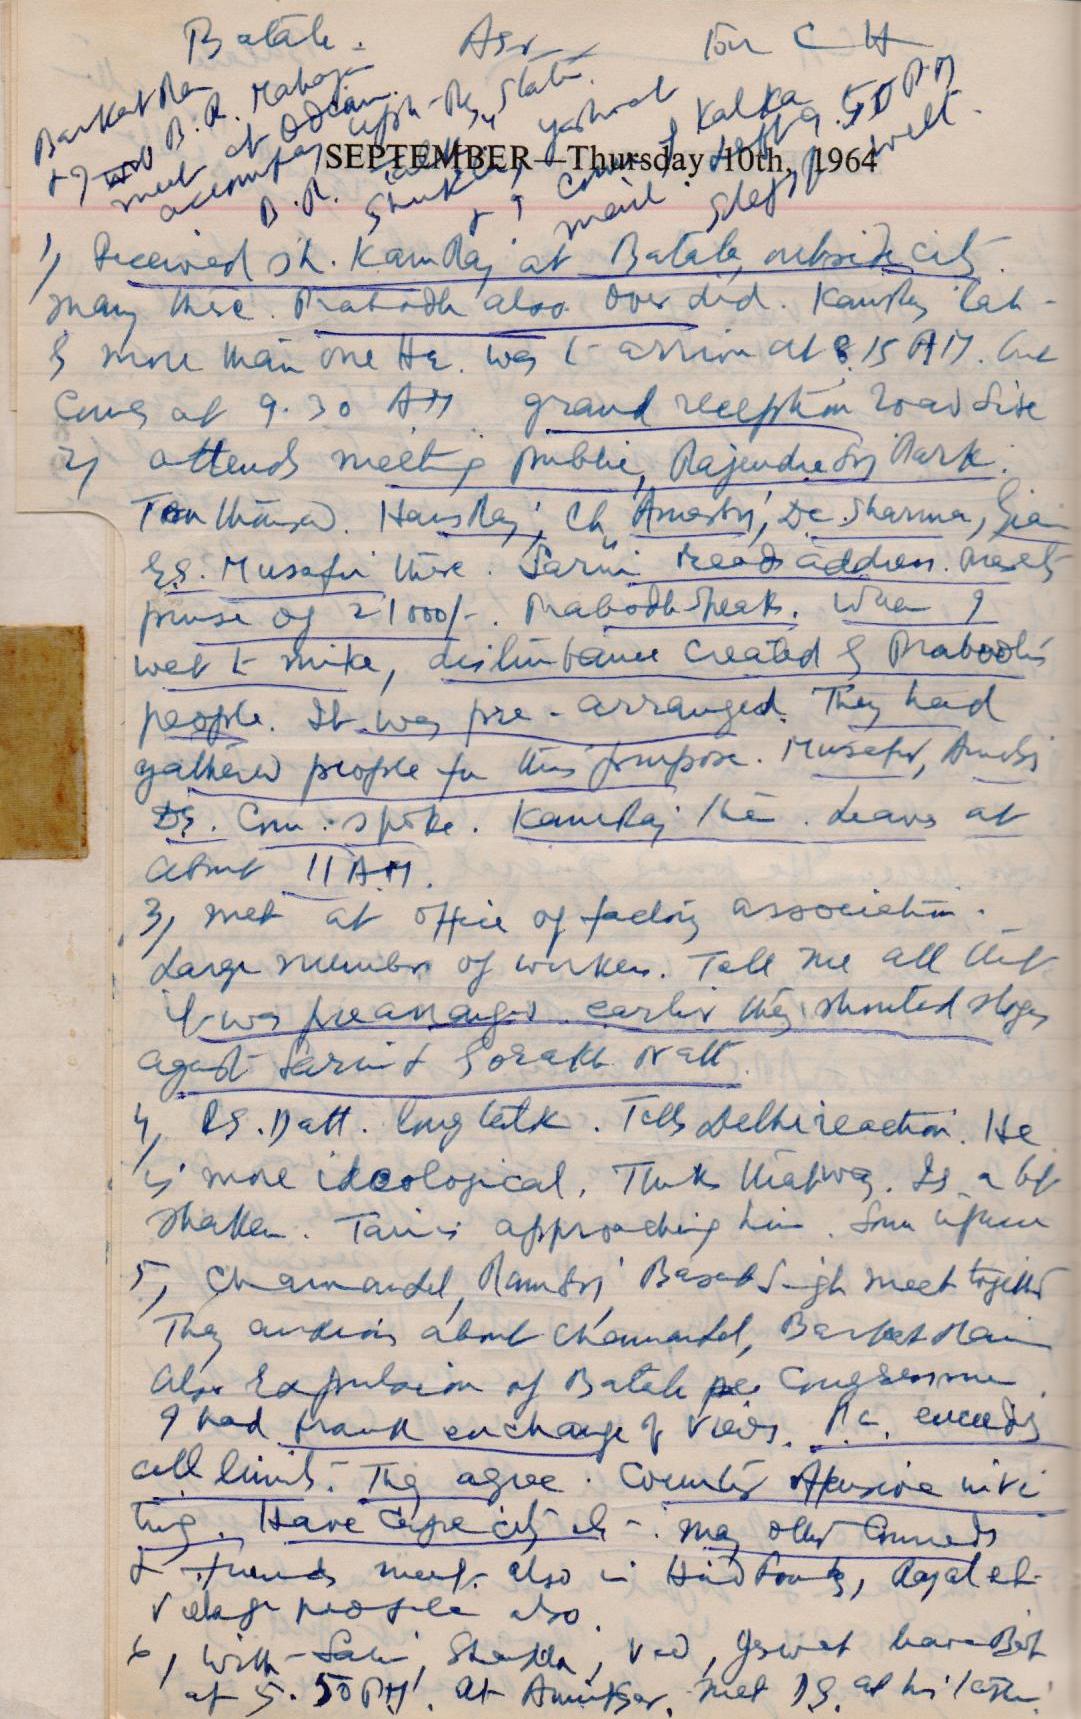 Batala. Asr Tour C H
Barkat Ram
& I B. R. Mahajan
meet at
accompany upto Rly Station.
B.R. Shukla, Yashwat
& I come by Kalka
mail. Slept well.
SEPTEMBER—Thursday 10th, 1964
1) Received Sh. KamRaj at Batala, outside city.
many there. Prabodh also over did. KamRaj late
by more than one Hr. was to arrive at 8.15 AM. but
comes at 9.30 AM grand reception road side
2) attends meeting public, Rajendra Park.
Ten thousand. HansRaj, Ch. Dr. Sharma, Giani
G.S. Musafir there. Sarin reads address. Presents
purse of 21000/-. Prabodh speaks. When I
went to mike, disturbance created by Prabodh's
people. It was pre-arranged. They had
gathered people for this purpose. Musafir,
DS. Com. spoke. KamRaj then. Leaves at
about 11 AM.
3) met at office of factory association.
Large number of workers. Tell me all that
it was prearranged. earlier they shouted slogans
against Sarin & Gorakh Natt.
4) RS. Datt. long talk. Tells Delhi reaction. He
is more ideological. Thinks that way. Is a bit
shaken. approaching him.
5) Chamandal, Basat Singh meet together
They anxious about Chamandal, Barkat Ram
also Expulsion of Batala Congressmen.
I had frank exchange of views. P.C. exceeds
all limits. They agree. Counter offensive
Have capacity
& friends meet. also in
village people also.
6) With Sarin, Shukla, Ved,
at 5.50 PM. at Amritsar. met DS. at his